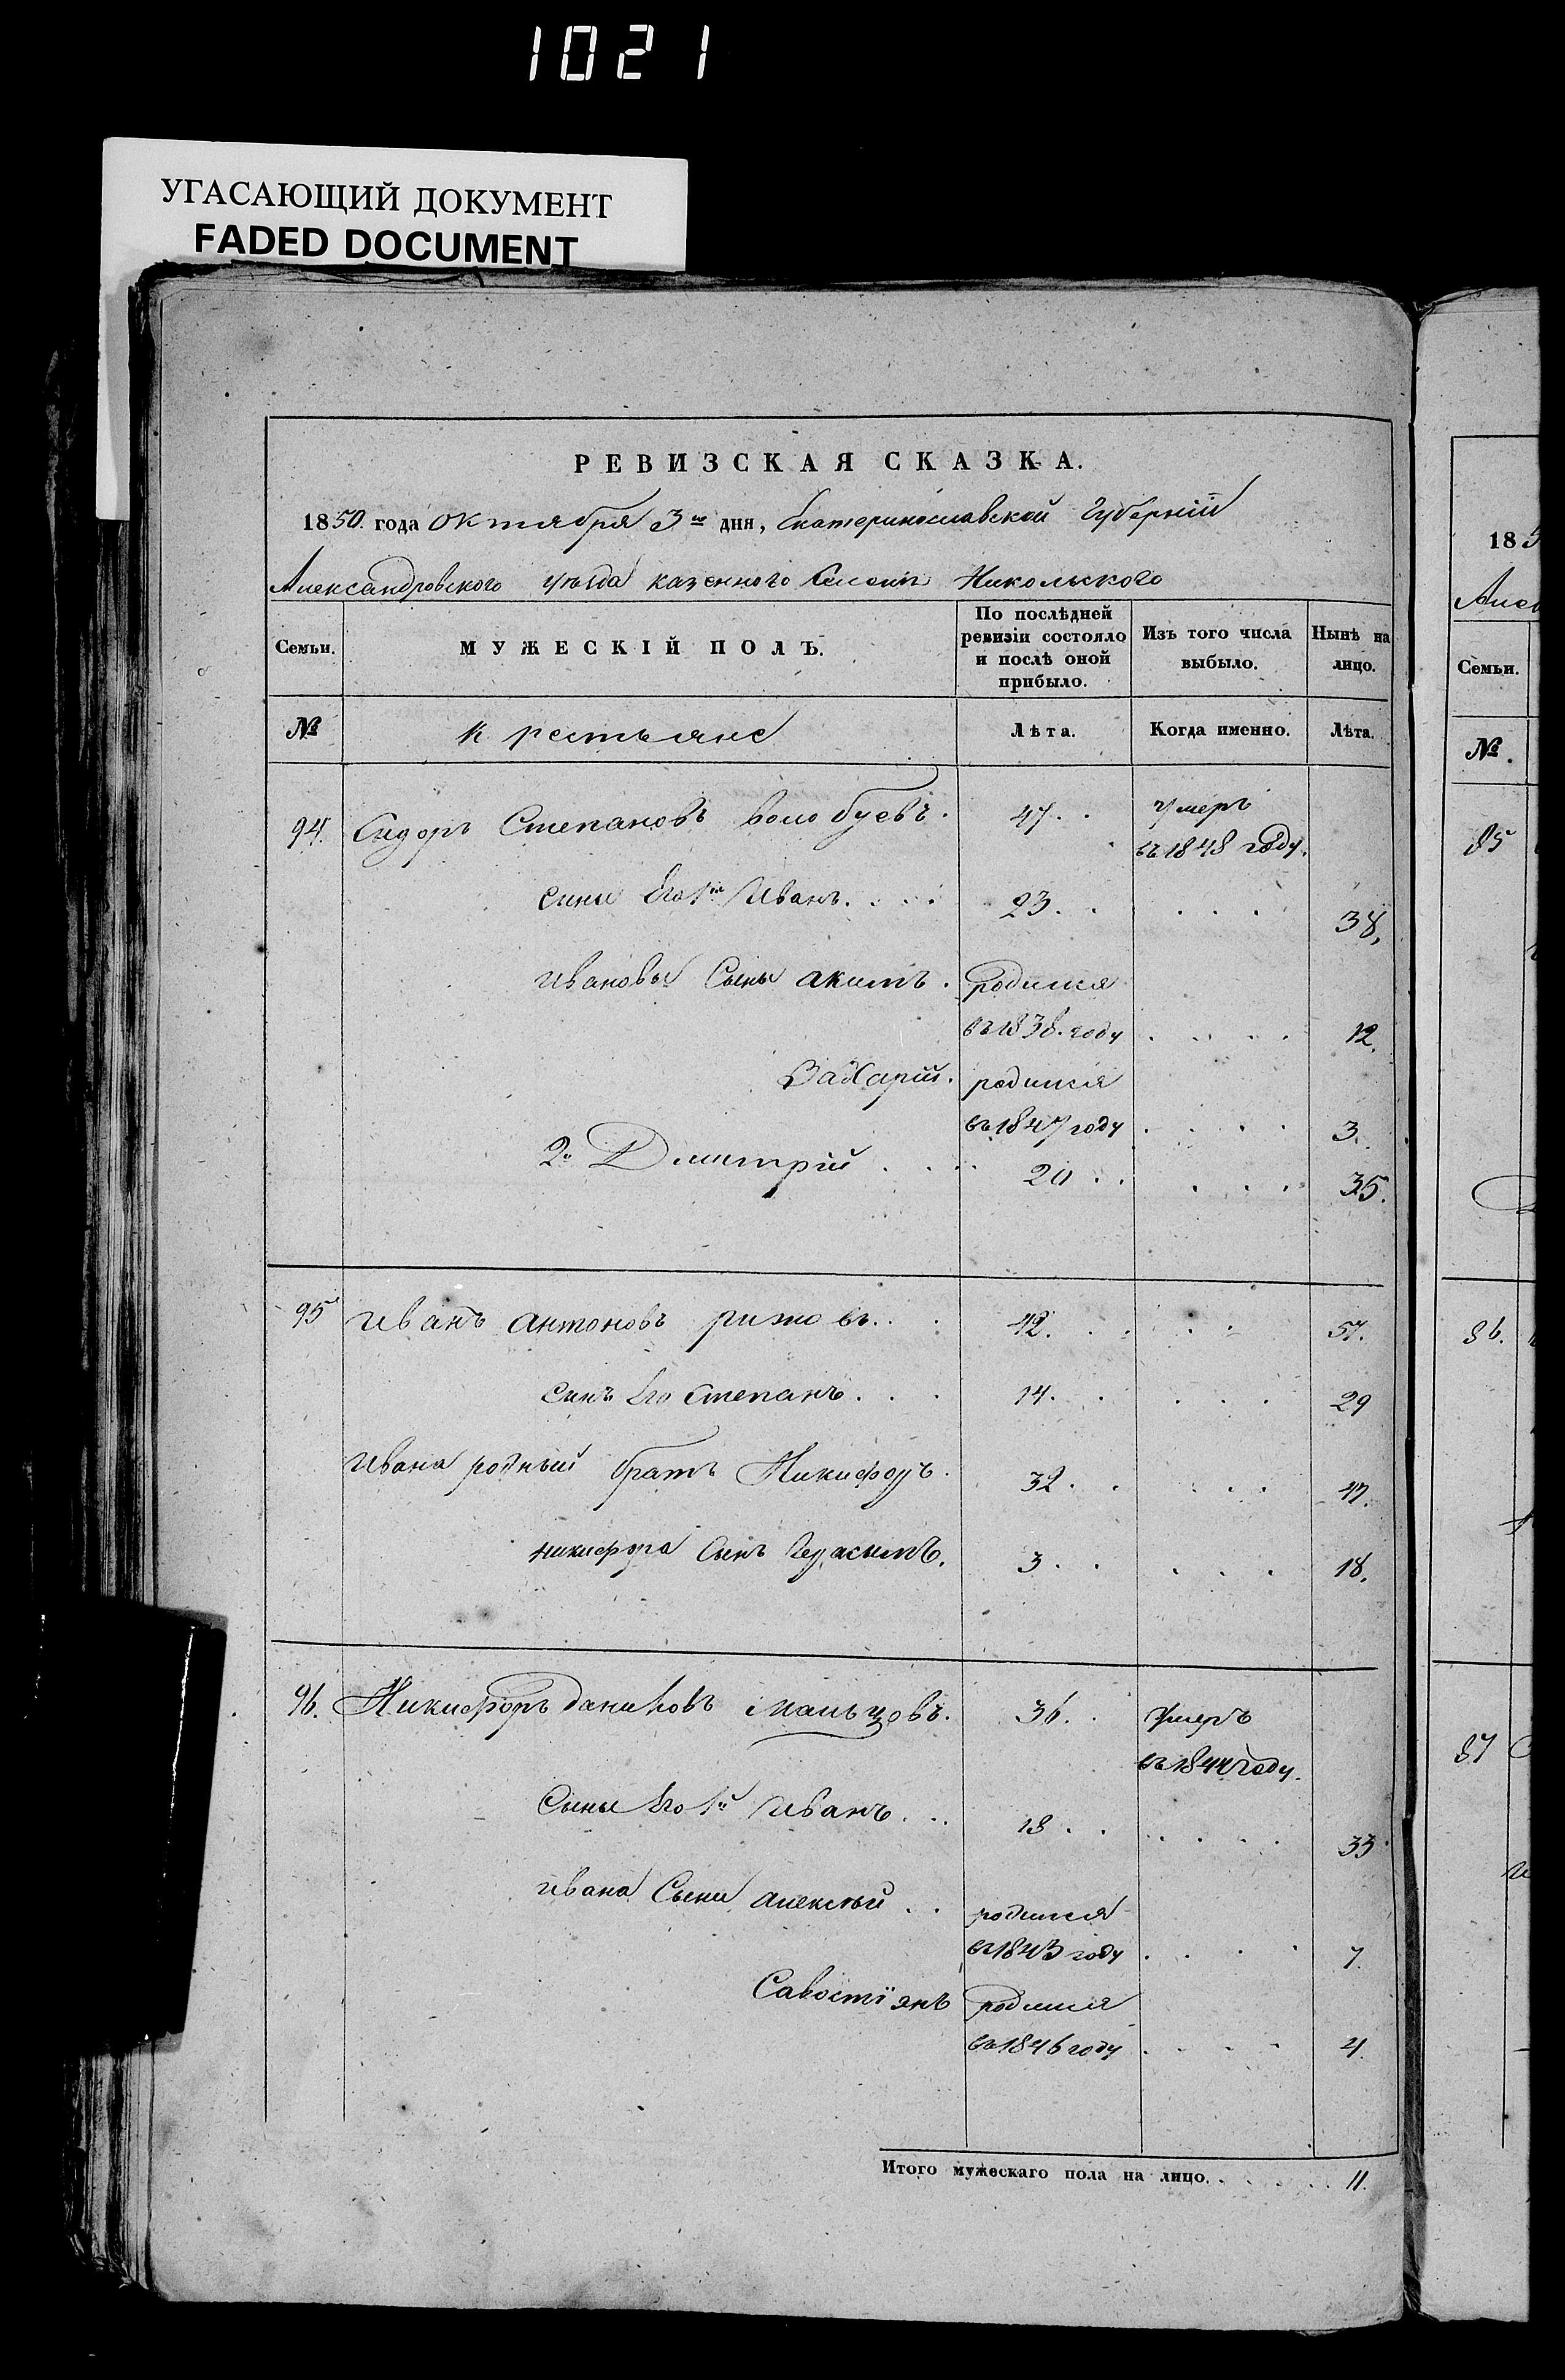 1021
УГАСАЮЩИЙ ДОКУМЕНТ
FADED DOCUMENT
РЕВИЗСКАЯ СКАЗКА.
1850. года октября 3го дня, Екатеринославской Губерніи
Александровского уѣзда казенного Селенія Никольского
Семьи. МУЖЕСКІЙ ПОЛЪ. По послѣдней ревизіи состояло и послѣ оной прибыло. Изъ того числа выбыло. Нынѣ на лицо.
№ крестьяне Лѣта. Когда именно. Лѣта.
94. Сидоръ Степановъ волобуевъ. 47. умеръ
въ 1848 году.
сини Его 1й Иванъ. 23. 38,
Ивановы Сыны акимъ. родился
въ 1838. году 12.
Захарій. родился
въ 1847 году 3.
2й Дмитрій 20 35.
95 иванъ антоновъ рижовъ. 42. 57.
синъ Его Степанъ. 14. 29
Ивана родный братъ Никифоръ. 32. 47.
никифора Сынъ Герасымъ. 3. 18.
96. Никифоръ даниловъ мальцовъ. 36. умеръ
въ 1844 году.
Сыны Его 1й Иванъ. 18. 33
ивана Сыни алексѣй родился
въ 1843 году 7.
Савостїянъ родился
въ 1846 году 4.
Итого мужескаго пола на лицо. 11.
185
Алек
Семьи.
№.
85
86.
87